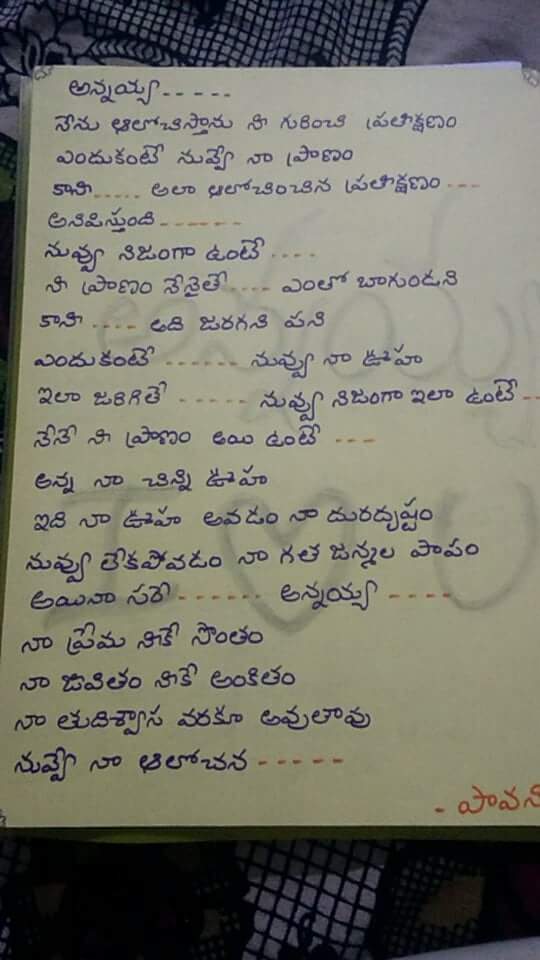 అన్నయ్య-----
నేను ఆలోచిస్తాను నీ గురించి ప్రతీక్షణం
ఎందుకంటే నువ్వే నా ప్రాణం
కానీ..... అలా ఆలోచించిన ప్రతీక్షణం ---
అనిపిస్తుంది------
నువ్వు నిజంగా ఉంటే ----
నీ ప్రాణం నేనైతే---- ఎంతో బాగుండని
కానీ ---- అది జరగని పని
ఎందుకంటే ------ నువ్వు నా ఊహ
ఇలా జరిగితే ------ నువ్వు నిజంగా ఇలా ఉంటే--
నేనే నీ ప్రాణం అయి ఉంటే ---
అన్న నా చిన్ని ఊహ
ఇది నా ఊహ అవడం నా దురదృష్టం
నువ్వు లేకపోవడం నా గత జన్మల పాపం
అయినా సరే ------ అన్నయ్య ----
నా ప్రేమ నీకే సొంతం
నా జీవితం నీకే అంకితం
నా తుదిశ్వాస వరకూ అవుతావు
నువ్వే నా ఆలోచన -----
- పావని
అన్నయ్య
I ♡ U